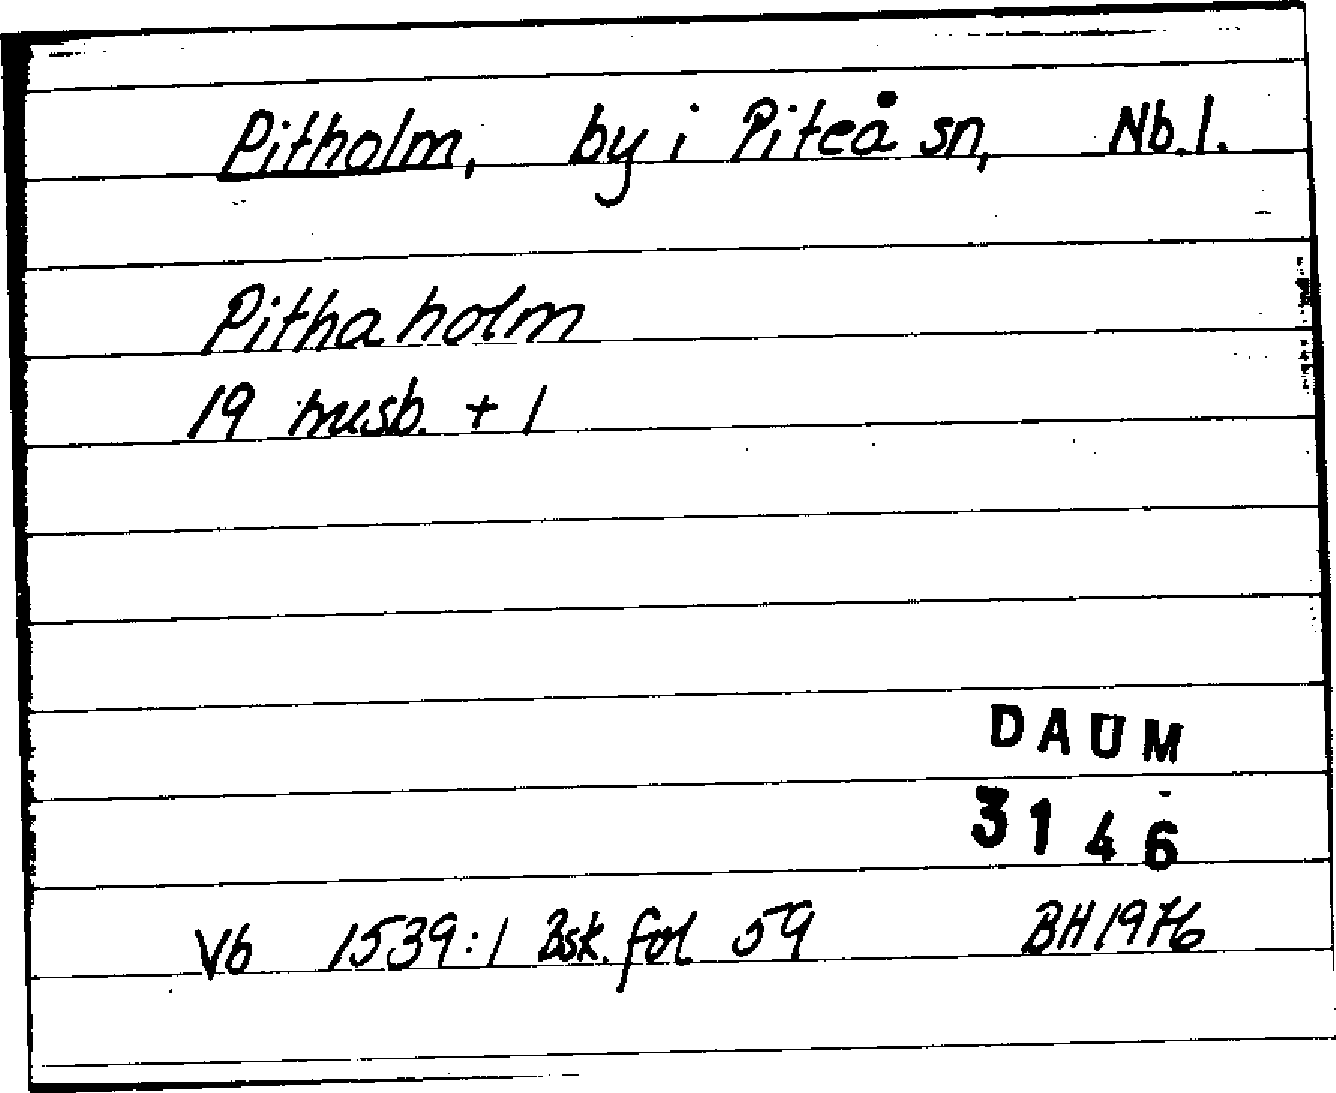 Pitholm, by i Piteå sn, Nb. l.
Pithaholm
19 husb. + 1
DAUM
3146
Vb 1539:1 Bsk. fol 59 BH 1976